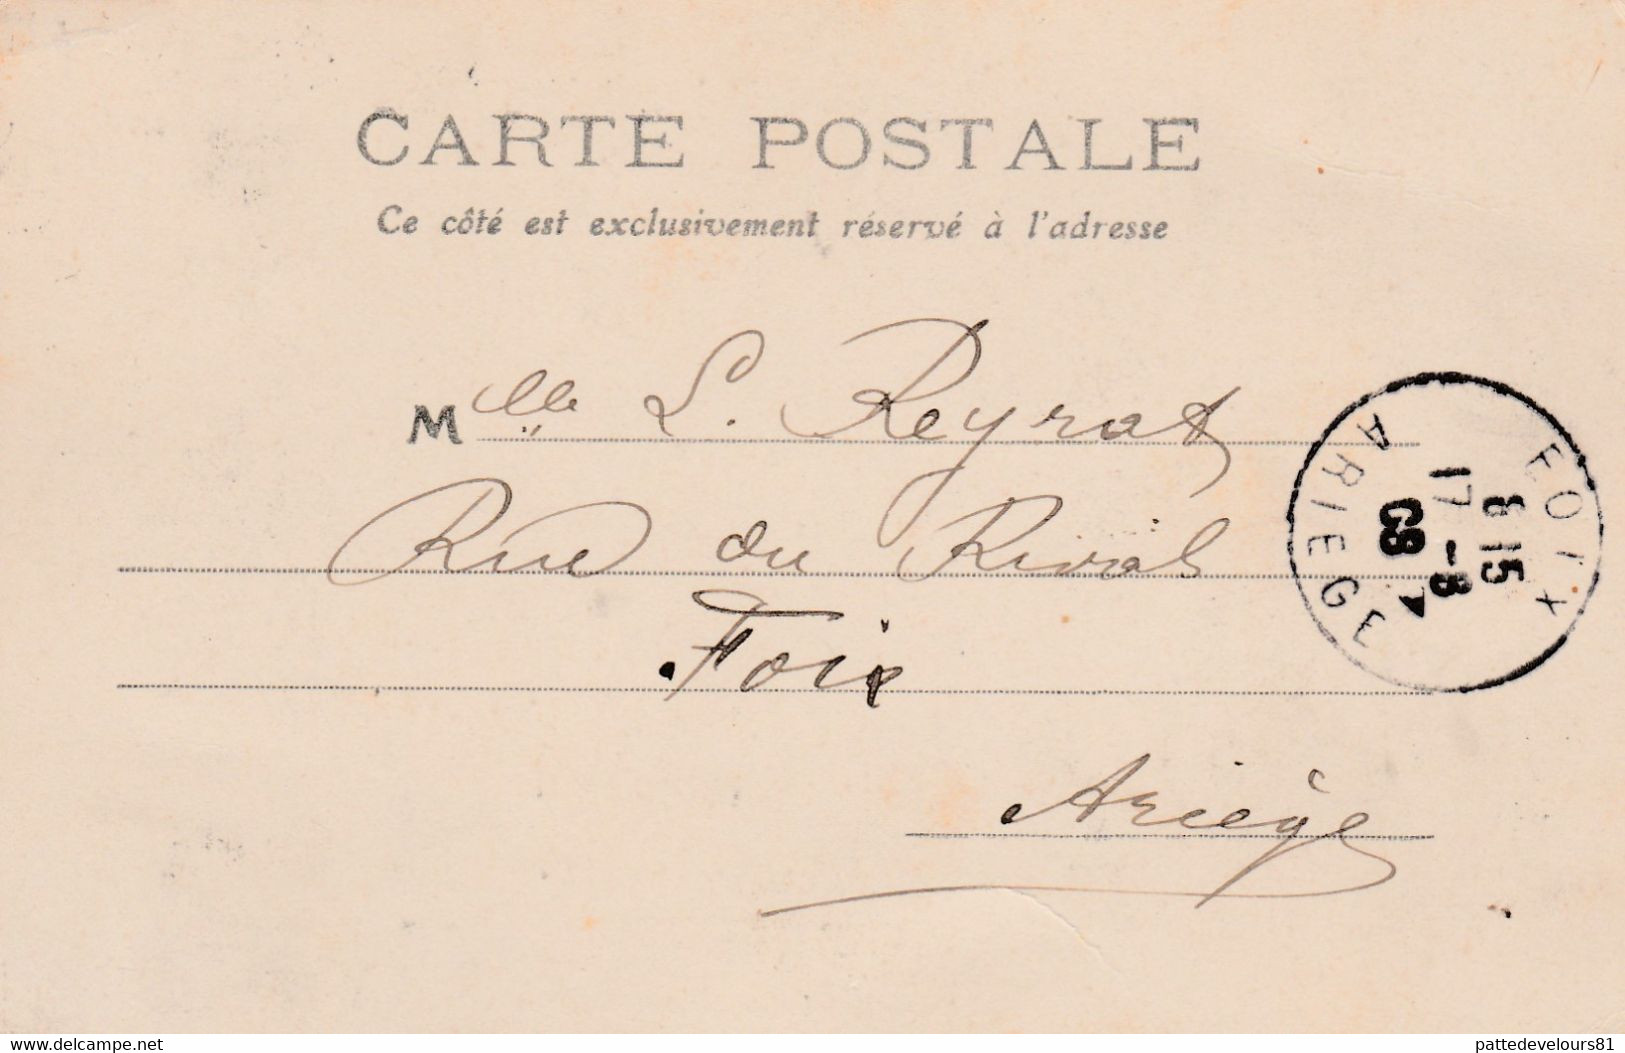 CARTE POSTALE
Ce côté est exclusivement réservé à l'adresse
Mlle L. Reyrat
Rue du Rival
Foix
Ariège
FOIX
8 15
17 -8
03
ARIEGE
www.delcampe.net
pattedevelours81